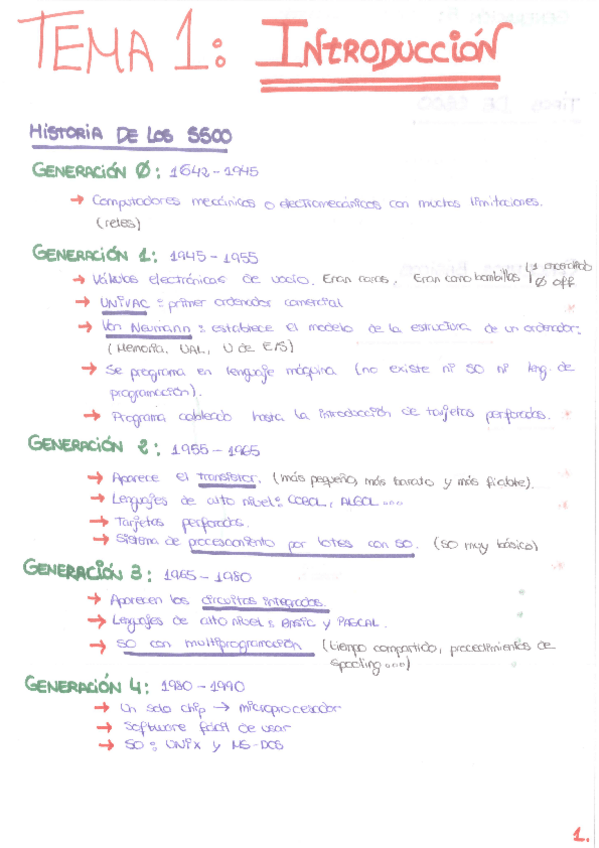 TEMA 1: INTRODUCCIÓN
HISTORIA DE LOS SSOO
GENERACIÓN Ø: 1642-1945
→ Computadores mecánicos o electromecánicos con muchas limitaciones.
(relés)
GENERACIÓN 1: 1945-1955
→ Válvulas electrónicas de vacío. Eran caras, Eran como bombillas 1 encendido
Ø off
→ UNIVAC: primer ordenador comercial
→ Von Neumann: establece el modelo de la estructura de un ordenador:
(Memoria, UAL, U de E/S)
→ Se programa en lenguaje máquina (no existe ni SO ni leng. de
programación).
→ Programa cableado hasta la introducción de tarjetas perforadas.
GENERACIÓN 2: 1955-1965
→ Aparece el transistor. (más pequeño, más barato y más fiable).
→ Lenguajes de alto nivel: COBOL, ALGOL...
→ Tarjetas perforadas.
→ Sistema de procesamiento por lotes con SO. (SO muy básico)
GENERACIÓN 3: 1965-1980
→ Aparecen los circuitos integrados.
→ Lenguajes de alto nivel: BASIC y PASCAL.
→ SO con multiprogramación (tiempo compartido, procedimientos de
spooling...)
GENERACIÓN 4: 1980-1990
→ Un solo chip → microprocesador
→ Software fácil de usar
→ SO: UNIX y MS-DOS
1.